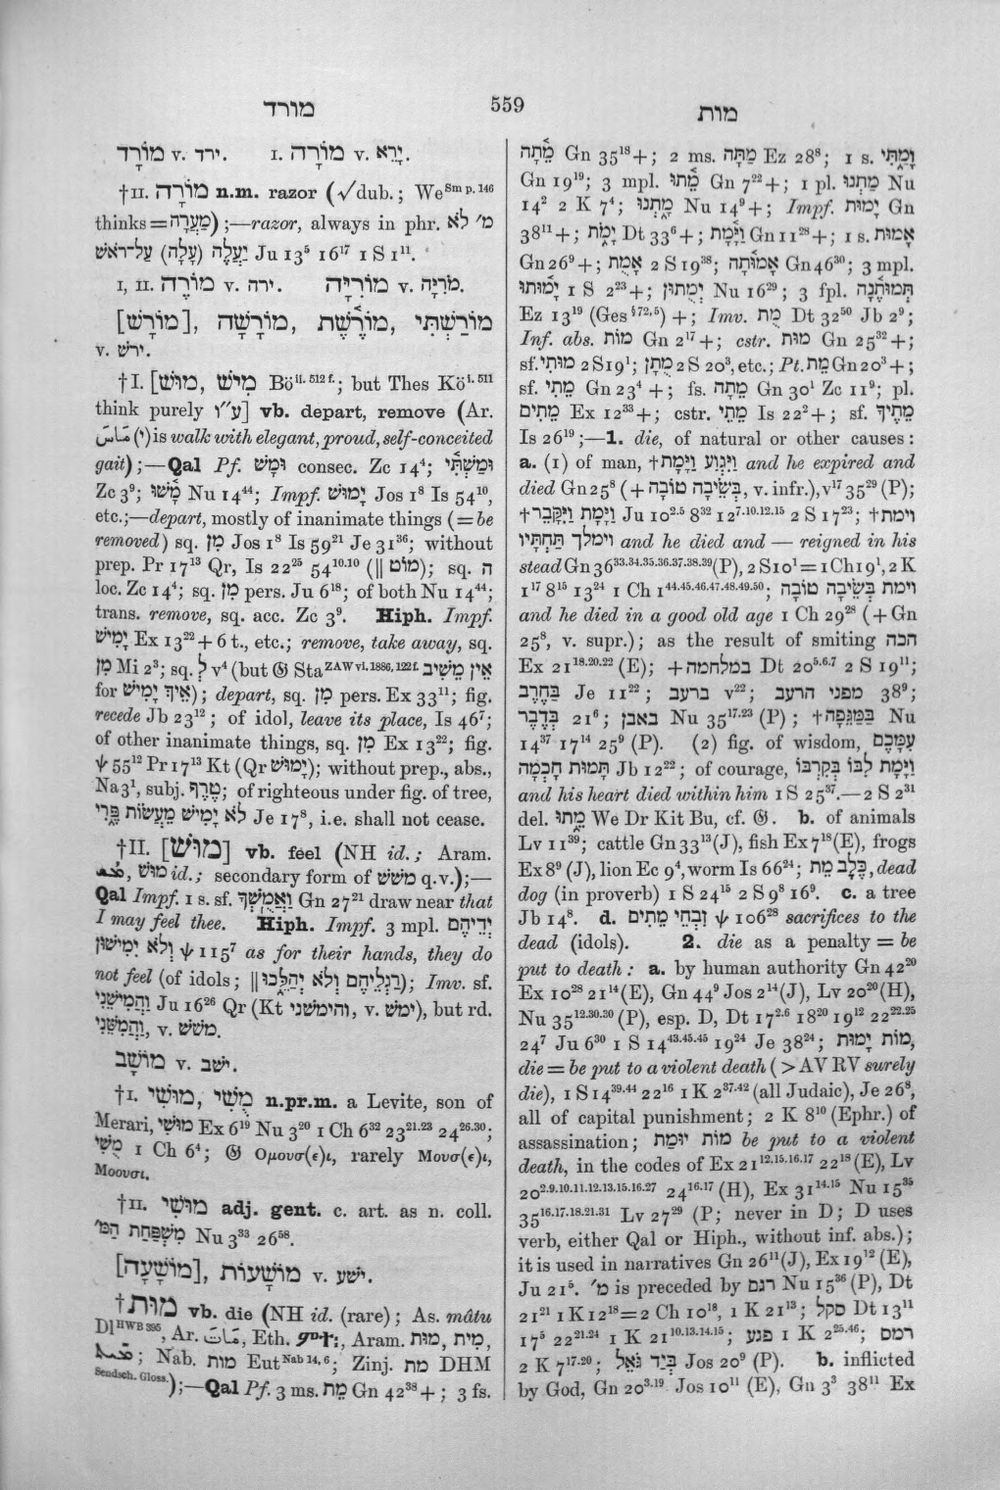 מורד
559
מות
מוֹרָד v. ירד. I. מוֹרָה v. יָרֵא.
†II. מוֹרָה n.m. razor (√dub.; We Sm p. 146
thinks = מַעֲרָה);—razor, always in phr. מ׳ לֹא
יַעֲלֶה (עָלָה) עַל־רֹאשׁ Ju 13⁵ 16¹⁷ 1 S 1¹¹.
I, II. מוֹרֶה v. ירה. מוֹרִיָּה v. מֹרִיָּה.
[מוֹרָשׁ], מוֹרָשָׁה, מוֹרֶשֶׁת, מוֹרַשְׁתִּי
v. ירשׁ.
†I. [מוּשׁ, מִישׁ Bö ii. 512 f.; but Thes Kö i. 511
think purely ע״ו] vb. depart, remove (Ar.
مَاسَ (ي) is walk with elegant, proud, self-conceited
gait);—Qal Pf. וּמָשׁ consec. Zc 14⁴; וּמַשְׁתִּי
Zc 3⁹; מָ֫שׁוּ Nu 14⁴⁴; Impf. יָמוּשׁ Jos 1⁸ Is 54¹⁰,
etc.;—depart, mostly of inanimate things (= be
removed) sq. מִן Jos 1⁸ Is 59²¹ Je 31³⁶; without
prep. Pr 17¹³ Qr, Is 22²⁵ 54¹⁰·¹⁰ (‖ מוֹט); sq. ה
loc. Zc 14⁴; sq. מִן pers. Ju 6¹⁸; of both Nu 14⁴⁴;
trans. remove, sq. acc. Zc 3⁹. Hiph. Impf.
יָמִישׁ Ex 13²² + 6 t., etc.; remove, take away, sq.
מִן Mi 2³; sq. לְ v⁴ (but 𝔊 Sta ZAW vi. 1886, 122 f. אֵין מֵשִׁיב
for אֵיךְ יָמִישׁ); depart, sq. מִן pers. Ex 33¹¹; fig.
recede Jb 23¹²; of idol, leave its place, Is 46⁷;
of other inanimate things, sq. מִן Ex 13²²; fig.
ψ 55¹² Pr 17¹³ Kt (Qr יָמוּשׁ); without prep., abs.,
Na 3¹, subj. טֶרֶף; of righteous under fig. of tree,
לֹא יָמִישׁ מֵעֲשׂוֹת פֶּרִי Je 17⁸, i.e. shall not cease.
†II. [מוּשׁ] vb. feel (NH id.; Aram.
מוּשׁ id.; secondary form of משׁשׁ q.v.);—
Qal Impf. 1 s. sf. וַאֲמֻשְׁךָ Gn 27²¹ draw near that
I may feel thee. Hiph. Impf. 3 mpl. יְדֵיהֶם
וְלֹא יְמִישׁוּן ψ 115⁷ as for their hands, they do
not feel (of idols; ‖ רַגְלֵיהֶם וְלֹא יְהַלֵּכוּ); Imv. sf.
וַהֲמִישֵׁנִי Ju 16²⁶ Qr (Kt והימשׁני, v. ימשׁ), but rd.
וַהֲמִשֵּׁנִי, v. משׁשׁ.
מוֹשָׁב v. ישׁב.
†I. מוּשִׁי, מֻשִׁי n.pr.m. a Levite, son of
Merari, מוּשִׁי Ex 6¹⁹ Nu 3²⁰ 1 Ch 6³² 23²¹·²³ 24²⁶·³⁰;
מֻשִׁי 1 Ch 6⁴; 𝔊 Ομουσ(ε)ι, rarely Μουσ(ε)ι,
Μοουσι.
†II. מוּשִׁי adj. gent. c. art. as n. coll.
מִשְׁפַּחַת הַמּ׳ Nu 3³³ 26⁵⁸.
[מוֹשָׁעָה], מוֹשָׁעוֹת v. ישׁע.
†מוּת vb. die (NH id. (rare); As. mâtu
Dl HWB 395, Ar. مَاتَ, Eth. ሞተ፡, Aram. מִית, מוּת,
; Nab. מות Eut Nab 14, 6; Zinj. מת DHM
Sendsch. Gloss.);—Qal Pf. 3 ms. מֵת Gn 42³⁸ +; 3 fs.
מֵ֫תָה Gn 35¹⁸ +; 2 ms. מַתָּה Ez 28⁸; 1 s. וָמַ֫תִּי
Gn 19¹⁹; 3 mpl. מֵ֫תוּ Gn 7²² +; 1 pl. מַתְנוּ Nu
14² 2 K 7⁴; מָתְנוּ Nu 14⁹ +; Impf. יָמוּת Gn
38¹¹ +; יָמֹת Dt 33⁶ +; וַיָּ֫מָת Gn 11²⁸ +; 1 s. אָמוּת
Gn 26⁹ +; אָמֻת 2 S 19³⁸; אָמ֫וּתָה Gn 46³⁰; 3 mpl.
יָמ֫וּתוּ 1 S 2²³ +; יְמֻתוּן Nu 16²⁹; 3 fpl. תְּמוּתֶ֫נָה
Ez 13¹⁹ (Ges §72, 5) +; Imv. מֻת Dt 32⁵⁰ Jb 2⁹;
Inf. abs. מוֹת Gn 2¹⁷ +; cstr. מוּת Gn 25³² +;
sf. מוּתִי 2 S 19¹; מֻתָן 2 S 20³, etc.; Pt. מֵת Gn 20³ +;
sf. מֵתִי Gn 23⁴ +; fs. מֵתָה Gn 30¹ Zc 11⁹; pl.
מֵתִים Ex 12³³ +; cstr. מֵתֵי Is 22² +; sf. מֵתֶיךָ
Is 26¹⁹;—1. die, of natural or other causes:
a. (1) of man, †וַיִּגְוַע וַיָּמָת and he expired and
died Gn 25⁸ (+ בְּשֵׂיבָה טוֹבָה, v. infr.), v¹⁷ 35²⁹ (P);
†וַיָּמָת וַיִּקָּבֵר Ju 10²·⁵ 8³² 12⁷·¹⁰·¹²·¹⁵ 2 S 17²³; †וימת
וימלך תַּחְתָּיו and he died and — reigned in his
stead Gn 36³³·³⁴·³⁵·³⁶·³⁷·³⁸·³⁹ (P), 2 S 10¹ = 1 Ch 19¹, 2 K
1¹⁷ 8¹⁵ 13²⁴ 1 Ch 1⁴⁴·⁴⁵·⁴⁶·⁴⁷·⁴⁸·⁴⁹·⁵⁰; וימת בְּשֵׂיבָה טוֹבָה
and he died in a good old age 1 Ch 29²⁸ (+ Gn
25⁸, v. supr.); as the result of smiting הכה
Ex 21¹⁸·²⁰·²² (E); + במלחמה Dt 20⁵·⁶·⁷ 2 S 19¹¹;
בַּחֶרֶב Je 11²²; ברעב v²²; מפני הרעב 38⁹;
בַּדֶּבֶר 21⁶; באבן Nu 35¹⁷·²³ (P); †בַּמַּגֵּפָה Nu
14³⁷ 17¹⁴ 25⁹ (P). (2) fig. of wisdom, עִמָּכֶם
תָּמוּת חָכְמָה Jb 12²²; of courage, וַיָּמָת לִבּוֹ בְּקִרְבּוֹ
and his heart died within him 1 S 25³⁷.—2 S 2³¹
del. מֵתוּ We Dr Kit Bu, cf. 𝔊. b. of animals
Lv 11³⁹; cattle Gn 33¹³ (J), fish Ex 7¹⁸ (E), frogs
Ex 8⁹ (J), lion Ec 9⁴, worm Is 66²⁴; כֶּלֶב מֵת, dead
dog (in proverb) 1 S 24¹⁵ 2 S 9⁸ 16⁹. c. a tree
Jb 14⁸. d. זִבְחֵי מֵתִים ψ 106²⁸ sacrifices to the
dead (idols). 2. die as a penalty = be
put to death: a. by human authority Gn 42²⁰
Ex 10²⁸ 21¹⁴ (E), Gn 44⁹ Jos 2¹⁴ (J), Lv 20²⁰ (H),
Nu 35¹²·³⁰·³⁰ (P), esp. D, Dt 17²·⁶ 18²⁰ 19¹² 22²²·²⁵
24⁷ Ju 6³⁰ 1 S 14⁴³·⁴⁵·⁴⁵ 19²⁴ Je 38²⁴; מוֹת יָמוּת,
die = be put to a violent death (> AV RV surely
die), 1 S 14³⁹·⁴⁴ 22¹⁶ 1 K 2³⁷·⁴² (all Judaic), Je 26⁸,
all of capital punishment; 2 K 8¹⁰ (Ephr.) of
assassination; מוֹת יוּמַת be put to a violent
death, in the codes of Ex 21¹²·¹⁵·¹⁶·¹⁷ 22¹⁸ (E), Lv
20²·⁹·¹⁰·¹¹·¹²·¹³·¹⁵·¹⁶·²⁷ 24¹⁶·¹⁷ (H), Ex 31¹⁴·¹⁵ Nu 15³⁵
35¹⁶·¹⁷·¹⁸·²¹·³¹ Lv 27²⁹ (P; never in D; D uses
verb, either Qal or Hiph., without inf. abs.);
it is used in narratives Gn 26¹¹ (J), Ex 19¹² (E),
Ju 21⁵. מ׳ is preceded by רגם Nu 15³⁶ (P), Dt
21²¹ 1 K 12¹⁸ = 2 Ch 10¹⁸, 1 K 21¹³; סקל Dt 13¹¹
17⁵ 22²¹·²⁴ 1 K 21¹⁰·¹³·¹⁴·¹⁵; פגע 1 K 2²⁵·⁴⁶; רמס
2 K 7¹⁷·²⁰; בְּיַד גֹּאֵל Jos 20⁹ (P). b. inflicted
by God, Gn 20³·¹⁹ Jos 10¹¹ (E), Gn 3³ 38¹¹ Ex